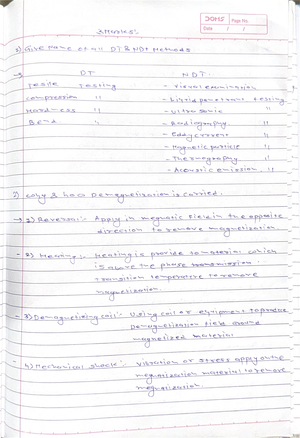 DOMS Page No.
Date / /
1) Give name of all DT & NDT Methods
→ DT NDT.
Tesile Testing - visual examination
compression " - Liquid penetrant testing
Hardness " - Ultra sonic "
Bend " - Radiography "
- Eddy current "
- Magnetic particle "
- Thermography "
- Acoustic emission "
2) why & how Demagnetization is carried.
→ 1) Reversal:- Apply in magnetic field in the opposite
direction to remove magnetization
- 2) Heating:- Heating is provide to material which
is above the phase transmission.
transition temperature to remove
magnetization.
- 3) Demagnetizing coil:- Using coil or equipment to produce
Demagnetization field around
magnetized material
- 4) Mechanical shock:- vibration or stress apply on the
magnetization material to remove
magnetization.